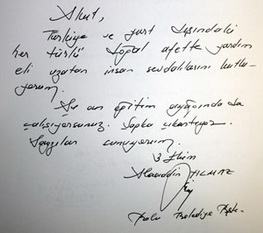 Akut,
Türkiye ve yurt dışındaki
her türlü doğal afette yardım
eli uzatan insan sevdalılarını kutlu-
yorum.
Şu an eğitim ayağında da
çalışıyorsunuz. Şapka çıkartıyor.
Saygılar sunuyorum.
3 Ekim
Alaaddin YILMAZ
Bolu Belediye Bşk.